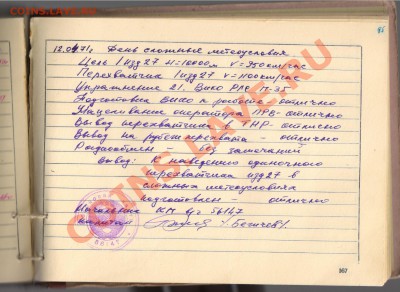 12.04.71г. День сложные метеоусловия
Цель 1 изд 27 Н=10000м V=950км/час
Перехватчик 1 изд 27 V=1100км/час
Упражнение 21. ВИКО РЛС П-35
Подготовка ВИКО к работе - отлично
Нацеливание оператора ПРВ - отлично
Вывод перехватчика в ТНР - отлично
Вывод на рубеж перехвата - отлично
Радиообмен - без замечаний
Вывод: К наведению одиночного
перехватчика изд 27 в
сложных метеоусловиях
подготовлен - отлично
Начальник КП в/ч 56147
капитан Бегичев
COINS.SU
COINS.LAVE.RU